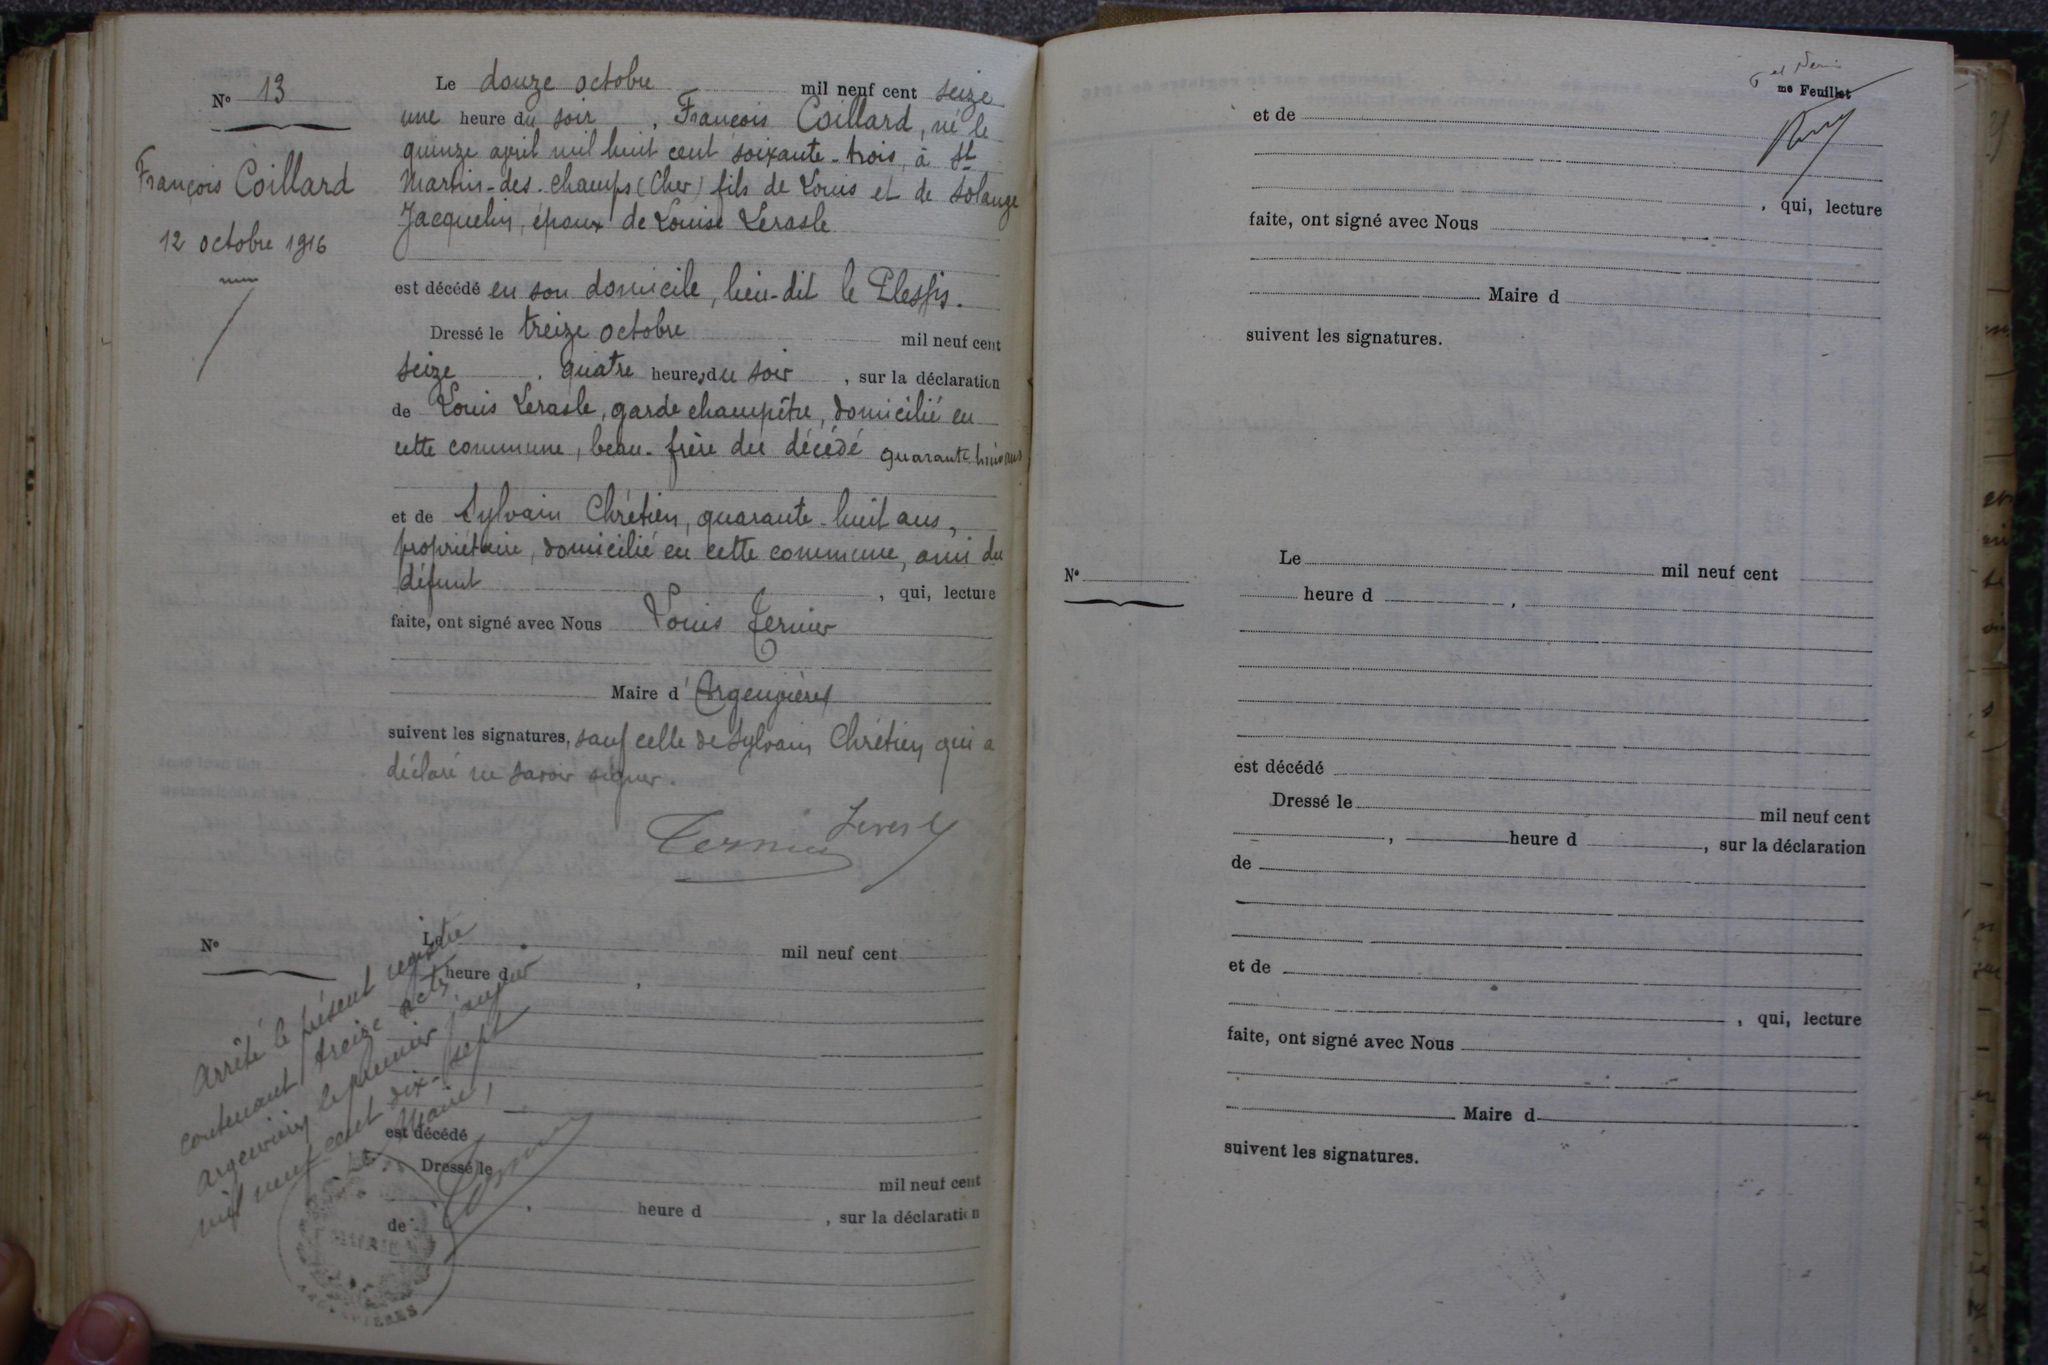 N° 13
François Coillard
12 octobre 1916
Le douze octobre mil neuf cent seize
une heure du soir, François Coillard, né le
quinze april mil huit cent soixante-trois, à St
Martin-des-champs (Cher) fils de Louis et de Solange
Jacquelin, époux de Louise Lerasle
est décédé en son domicile, lieu-dit le Plessis.
Dressé le treize octobre mil neuf cent
seize, quatre heures du soir, sur la déclaration
de Louis Lerasle, garde champêtre, domicilié en
cette commune, beau-frère du décédé quarante huit ans
et de Sylvain Chrétien, quarante-huit ans,
propriétaire, domicilié en cette commune, ami du
défunt, qui, lecture
faite, ont signé avec Nous Louis Ternier
Maire d'Argenvières
suivent les signatures, sauf celle de Sylvain Chrétien qui a
déclaré ne savoir signer.
Ternier
N°
Le mil neuf cent
heure d ,
est décédé
Dressé le mil neuf cent
, heure d , sur la déclaration
de
Arrêté le présent registre
contenant treize actes
Argenvières, le premier janvier
mil neuf cent dix-sept
Le Maire,
MAIRIE
ARGENVIERES
me Feuillet
et de
, qui, lecture
faite, ont signé avec Nous
Maire d
suivent les signatures.
N°
Le mil neuf cent
heure d ,
est décédé
Dressé le mil neuf cent
, heure d , sur la déclaration
de
et de
, qui, lecture
faite, ont signé avec Nous
Maire d
suivent les signatures.